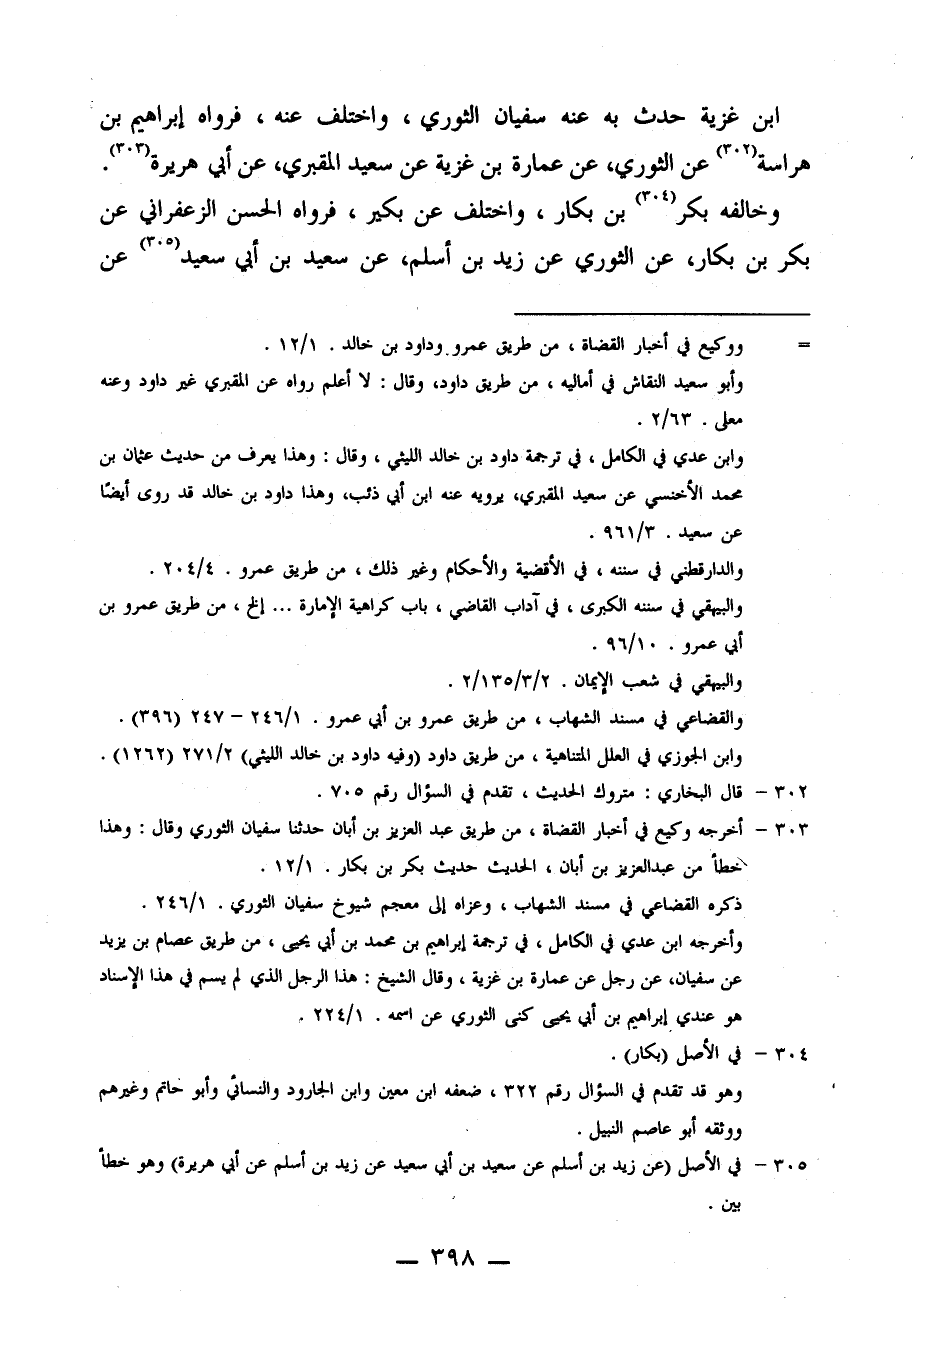 ابن غزية حدث به عنه سفيان الثوري ، واختلف عنه ، فرواه إبراهيم بن
هراسة(٣٠٢) عن الثوري، عن عمارة بن غزية عن سعيد المقبري، عن أبي هريرة(٣٠٣).
وخالفه بكر(٣٠٤) بن بكار ، واختلف عن بكير ، فرواه الحسن الزعفراني عن
بكر بن بكار، عن الثوري عن زيد بن أسلم، عن سعيد بن أبي سعيد(٣٠٥) عن
= ووكيع في أخبار القضاة ، من طريق عمرو وداود بن خالد . ١٢/١ .
وأبو سعيد النقاش في أماليه ، من طريق داود، وقال : لا أعلم رواه عن المقبري غير داود وعنه
معلى . ٢/٦٣ .
وابن عدي في الكامل ، في ترجمة داود بن خالد الليثي ، وقال : وهذا يعرف من حديث عثمان بن
محمد الأخنسي عن سعيد المقبري، يرويه عنه ابن أبي ذئب، وهذا داود بن خالد قد روى أيضًا
عن سعيد . ٩٦١/٣ .
والدارقطني في سننه ، في الأقضية والأحكام وغير ذلك ، من طريق عمرو . ٢٠٤/٤ .
والبيهقي في سننه الكبرى ، في آداب القاضي ، باب كراهية الإمارة ... إلخ ، من طريق عمرو بن
أبي عمرو . ٩٦/١٠ .
والبيهقي في شعب الإيمان . ٢/١٣٥/٣/٢ .
والقضاعي في مسند الشهاب ، من طريق عمرو بن أبي عمرو . ٢٤٦/١ – ٢٤٧ (٣٩٦) .
وابن الجوزي في العلل المتناهية ، من طريق داود (وفيه داود بن خالد الليثي) ٢٧١/٢ (١٢٦٢) .
٣٠٢ – قال البخاري : متروك الحديث ، تقدم في السؤال رقم ٧٠٥ .
٣٠٣ – أخرجه وكيع في أخبار القضاة ، من طريق عبد العزيز بن أبان حدثنا سفيان الثوري وقال : وهذا
خطأ من عبدالعزيز بن أبان ، الحديث حديث بكر بن بكار . ١٢/١ .
ذكره القضاعي في مسند الشهاب ، وعزاه إلى معجم شيوخ سفيان الثوري . ٢٤٦/١ .
وأخرجه ابن عدي في الكامل ، في ترجمة إبراهيم بن محمد بن أبي يحيى ، من طريق عصام بن يزيد
عن سفيان، عن رجل عن عمارة بن غزية ، وقال الشيخ : هذا الرجل الذي لم يسم في هذا الإسناد
هو عندي إبراهيم بن أبي يحيى كنى الثوري عن اسمه . ٢٢٤/١ .
٣٠٤ – في الأصل (بكار) .
وهو قد تقدم في السؤال رقم ٣٢٢ ، ضعفه ابن معين وابن الجارود والنسائي وأبو حاتم وغيرهم
ووثقه أبو عاصم النبيل .
٣٠٥ – في الأصل (عن زيد بن أسلم عن سعيد بن أبي سعيد عن زيد بن أسلم عن أبي هريرة) وهو خطأ
بين .
— ٣٩٨ —